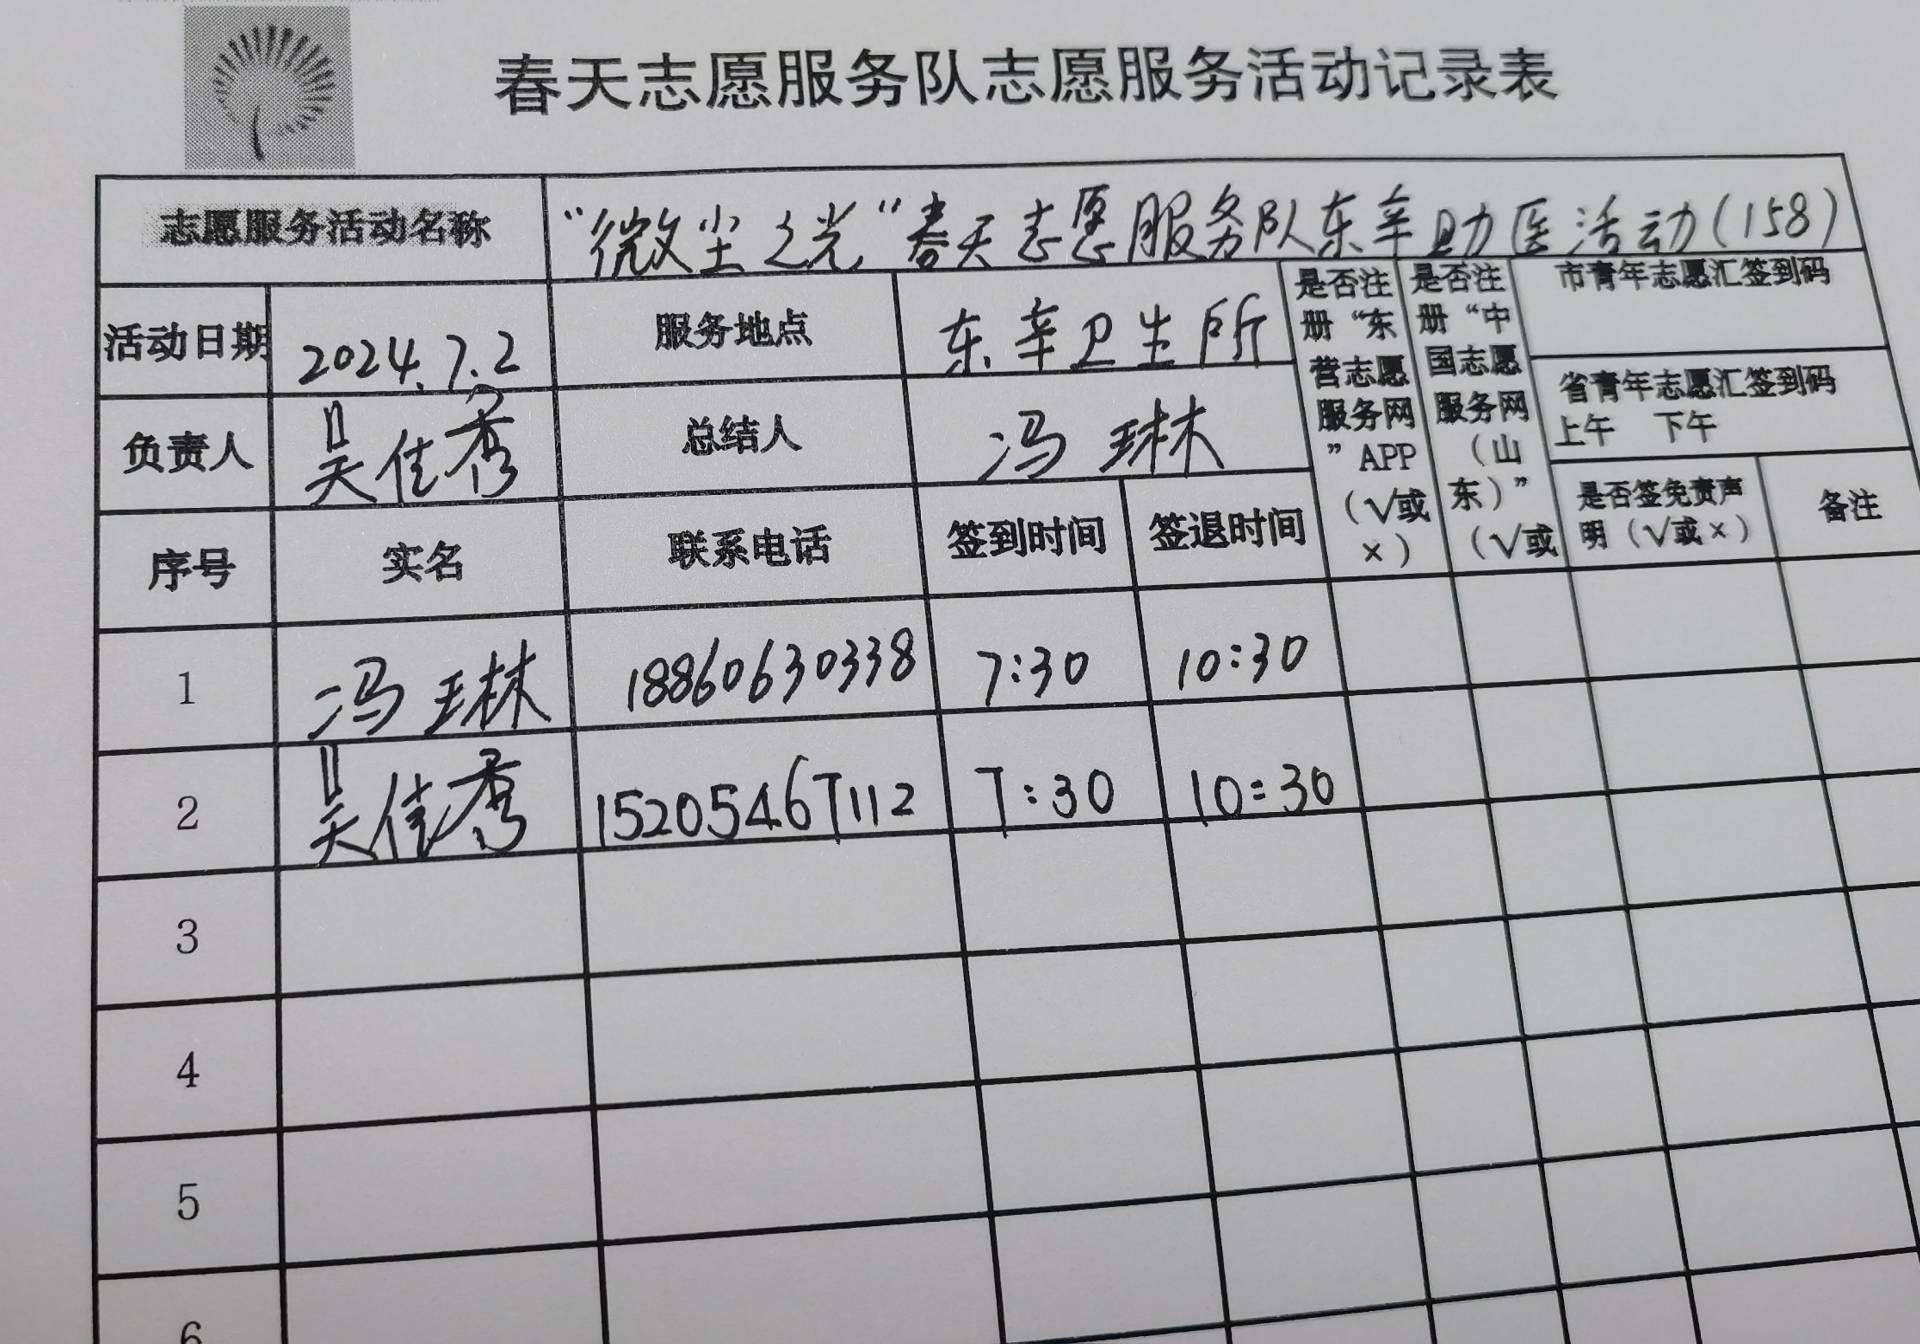 春天志愿服务队志愿服务活动记录表
志愿服务活动名称 “微尘之光”春天志愿服务队东辛助医活动(158)
活动日期 2024.7.2 服务地点 东辛卫生所
负责人 吴佳秀 总结人 冯琳
是否注册“东营志愿服务网”APP（√或×）
是否注册“中国志愿服务网（山东）”（√或
市青年志愿汇签到码
省青年志愿汇签到码
上午 下午
序号 实名 联系电话 签到时间 签退时间 是否签免责声明（√或×） 备注
1 冯琳 18860630338 7:30 10:30
2 吴佳秀 15205467112 7:30 10:30
3
4
5
6